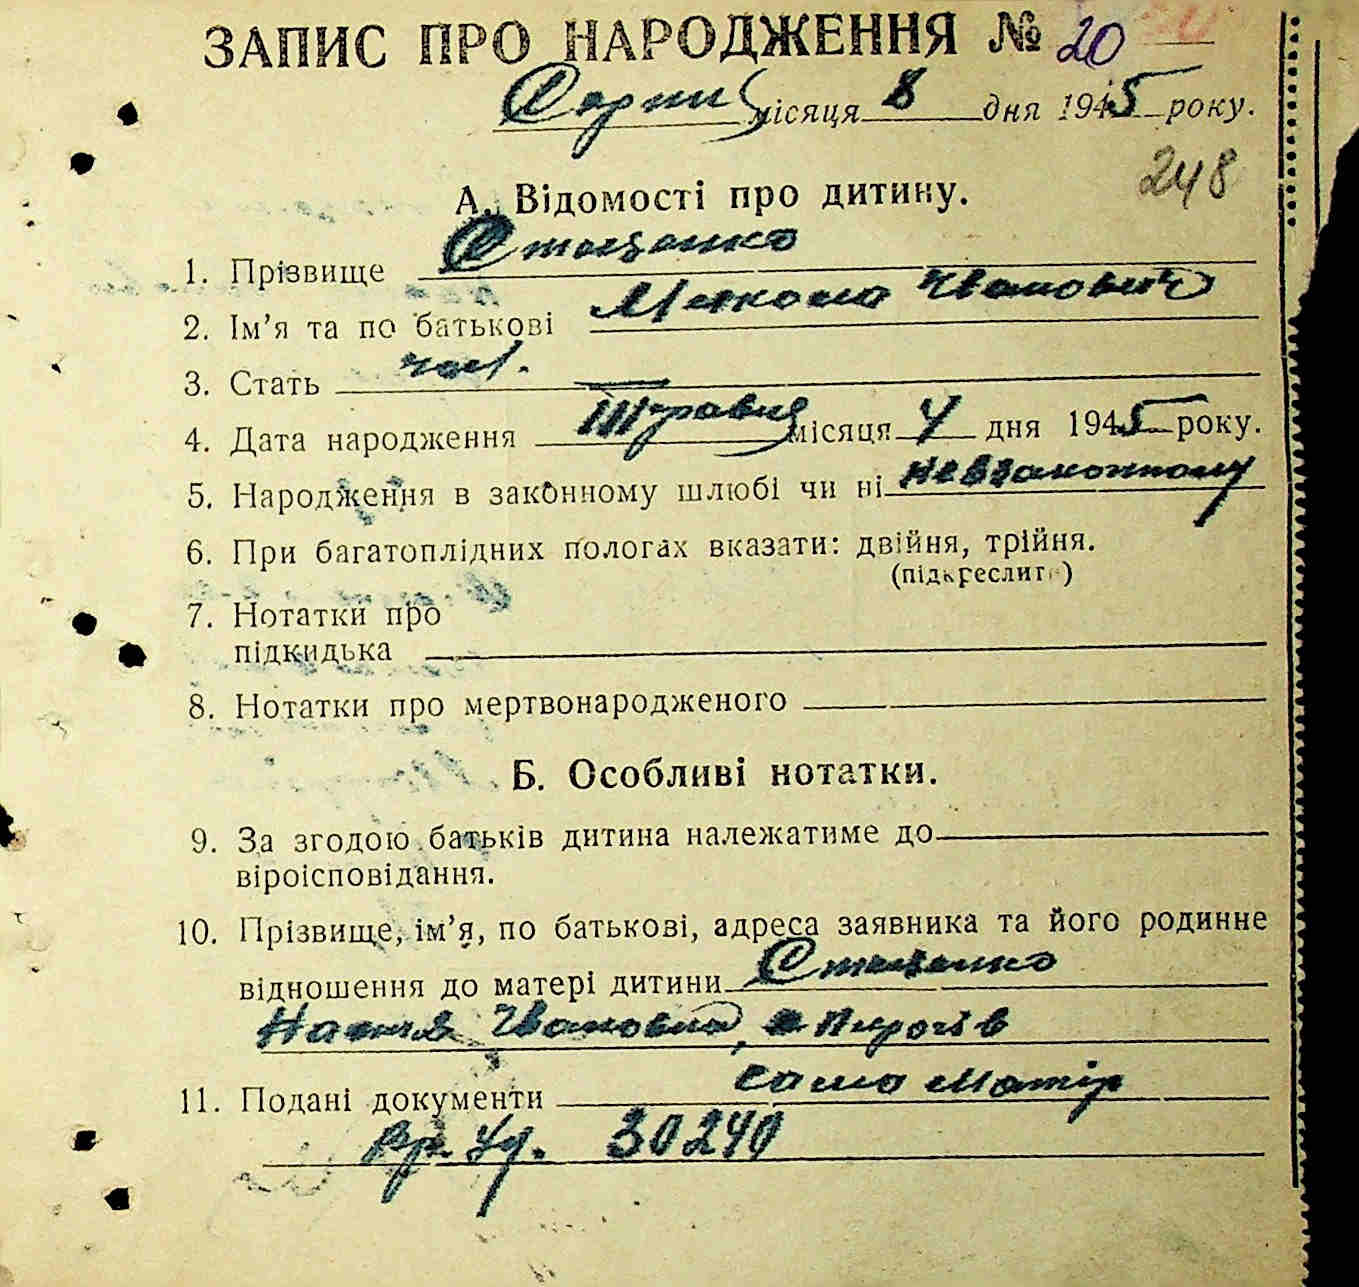 ЗАПИС ПРО НАРОДЖЕННЯ № 20
Серпня місяця 8 дня 1945 року.
248
А. Відомості про дитину.
1. Прізвище Стаценко
2. Ім'я та по батькові Микола Іванович
3. Стать чол.
4. Дата народження Травня місяця 4 дня 1945 року.
5. Народження в законному шлюбі чи ні невзаконному
6. При багатоплідних пологах вказати: двійня, трійня.
(підкреслити)
7. Нотатки про
підкидька
8. Нотатки про мертвонародженого
Б. Особливі нотатки.
9. За згодою батьків дитина належатиме до
віроісповідання.
10. Прізвище, ім'я, по батькові, адреса заявника та його родинне
відношення до матері дитини Стаценко
Настя Івановна, Пирогів
11. Подані документи сама матір
вр. уд. 30240